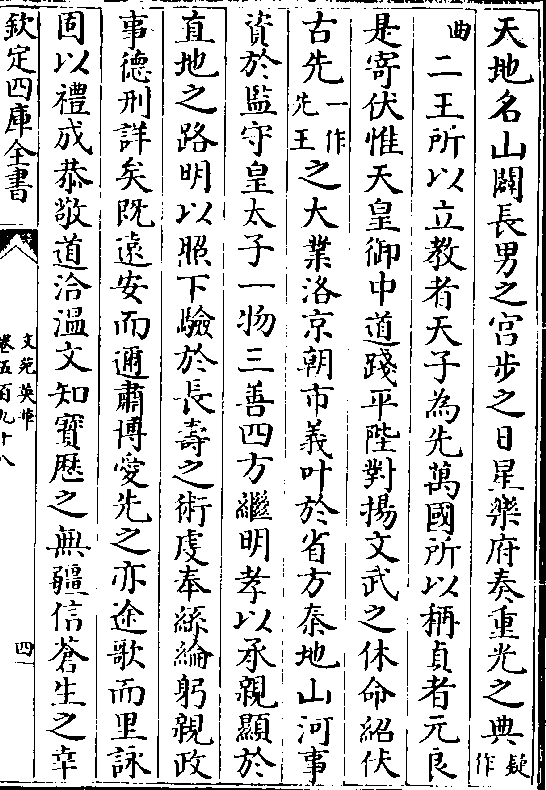 天地名山闢長男之宫步之日星樂府奏重光之典疑作
曲二王所以立教者天子為先萬國所以稱貞者元良
是寄伏惟天皇御中道踐平陛對揚文武之休命紹伏
古先一作先王之大業洛京朝市義叶於省方秦地山河事
資於監守皇太子一物三善四方繼明孝以承親顯於
直地之路明以照下驗於長壽之術虔奉絲綸躬親政
事德刑詳矣既遠安而邇肅博愛先之亦途歌而里詠
固以禮成恭敬道洽溫文知寳歴之無疆信蒼生之幸
欽定四庫全書
文苑英華
卷五百九十八
四